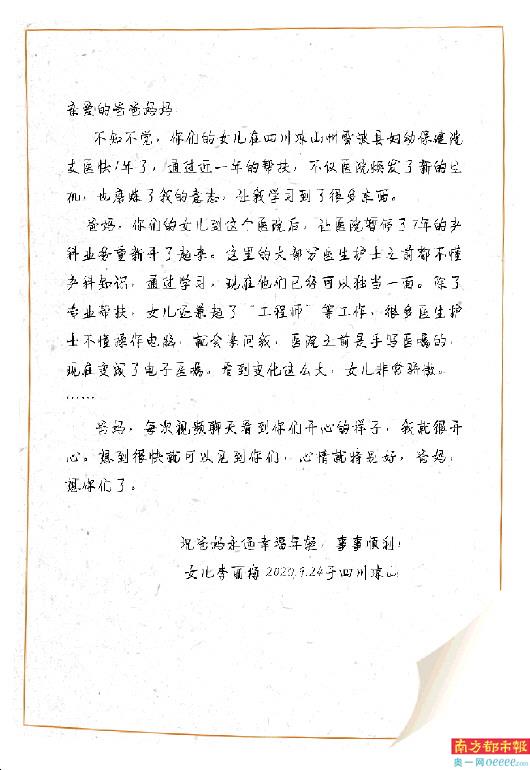 亲爱的爸爸妈妈
不知不觉，你们的女儿在四川凉山州雷波县妇幼保健院
支医快1年了，通过近一年的帮扶，不仅医院焕发了新的生
机，也磨炼了我的意志，让我学习到了很多东西。
爸妈，你们的女儿到这个医院后，让医院暂停了7年的产
科业务重新开了起来。这里的大部分医生护士之前都不懂
产科知识，通过学习，现在他们已经可以独当一面。除了
专业帮扶，女儿还兼起了“工程师”等工作，很多医生护
士不懂操作电脑，就会来问我，医院之前是手写医嘱的，
现在变成了电子医嘱。看到变化这么大，女儿非常骄傲。
……
爸妈，每次视频聊天看到你们开心的样子，我就很开
心。想到很快就可以见到你们，心情就特别好，爸妈，
想你们了。
祝爸妈永远幸福年轻，事事顺利！
女儿李丽梅 2020.9.24于四川凉山
南方都市报
奥一网oeeee.com